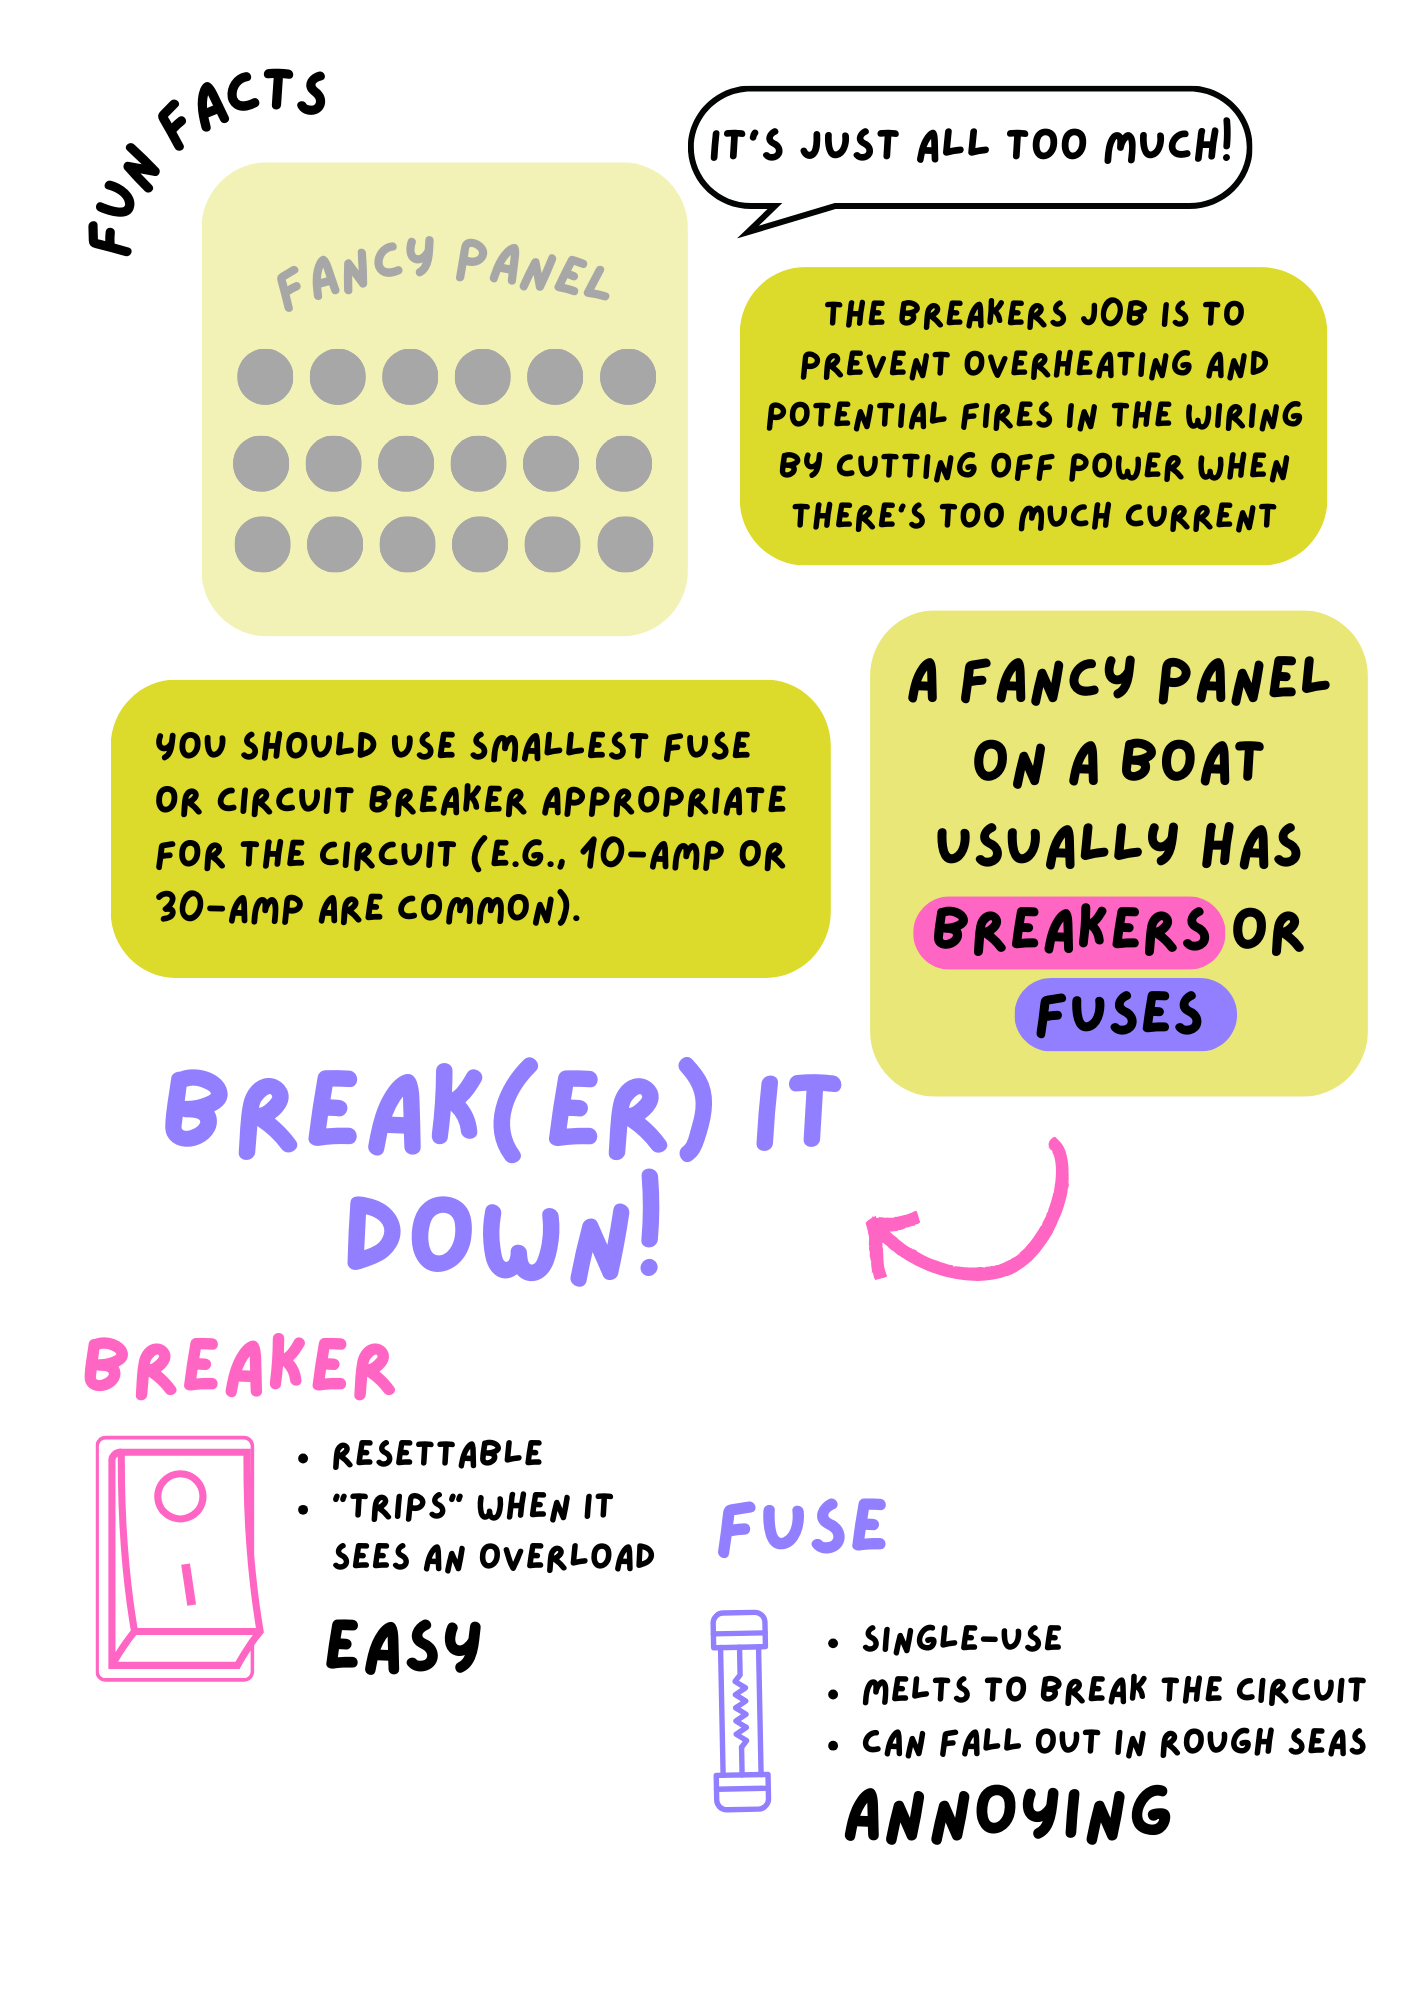 FUN FACTS
IT'S JUST ALL TOO MUCH!
FANCY PANEL
THE BREAKERS JOB IS TO
PREVENT OVERHEATING AND
POTENTIAL FIRES IN THE WIRING
BY CUTTING OFF POWER WHEN
THERE'S TOO MUCH CURRENT
A FANCY PANEL
ON A BOAT
USUALLY HAS
BREAKERS OR
FUSES
YOU SHOULD USE SMALLEST FUSE
OR CIRCUIT BREAKER APPROPRIATE
FOR THE CIRCUIT (E.G., 10-AMP OR
30-AMP ARE COMMON).
BREAK(ER) IT
DOWN!
BREAKER
• RESETTABLE
• "TRIPS" WHEN IT
SEES AN OVERLOAD
EASY
FUSE
• SINGLE-USE
• MELTS TO BREAK THE CIRCUIT
• CAN FALL OUT IN ROUGH SEAS
ANNOYING